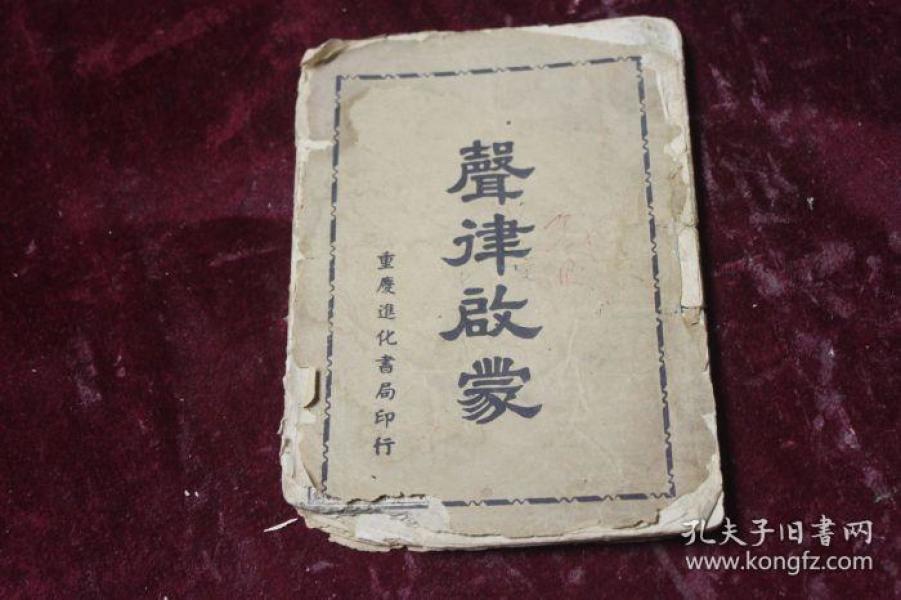 聲律啟蒙
重慶進化書局印行
孔夫子旧書网
www.kongfz.com